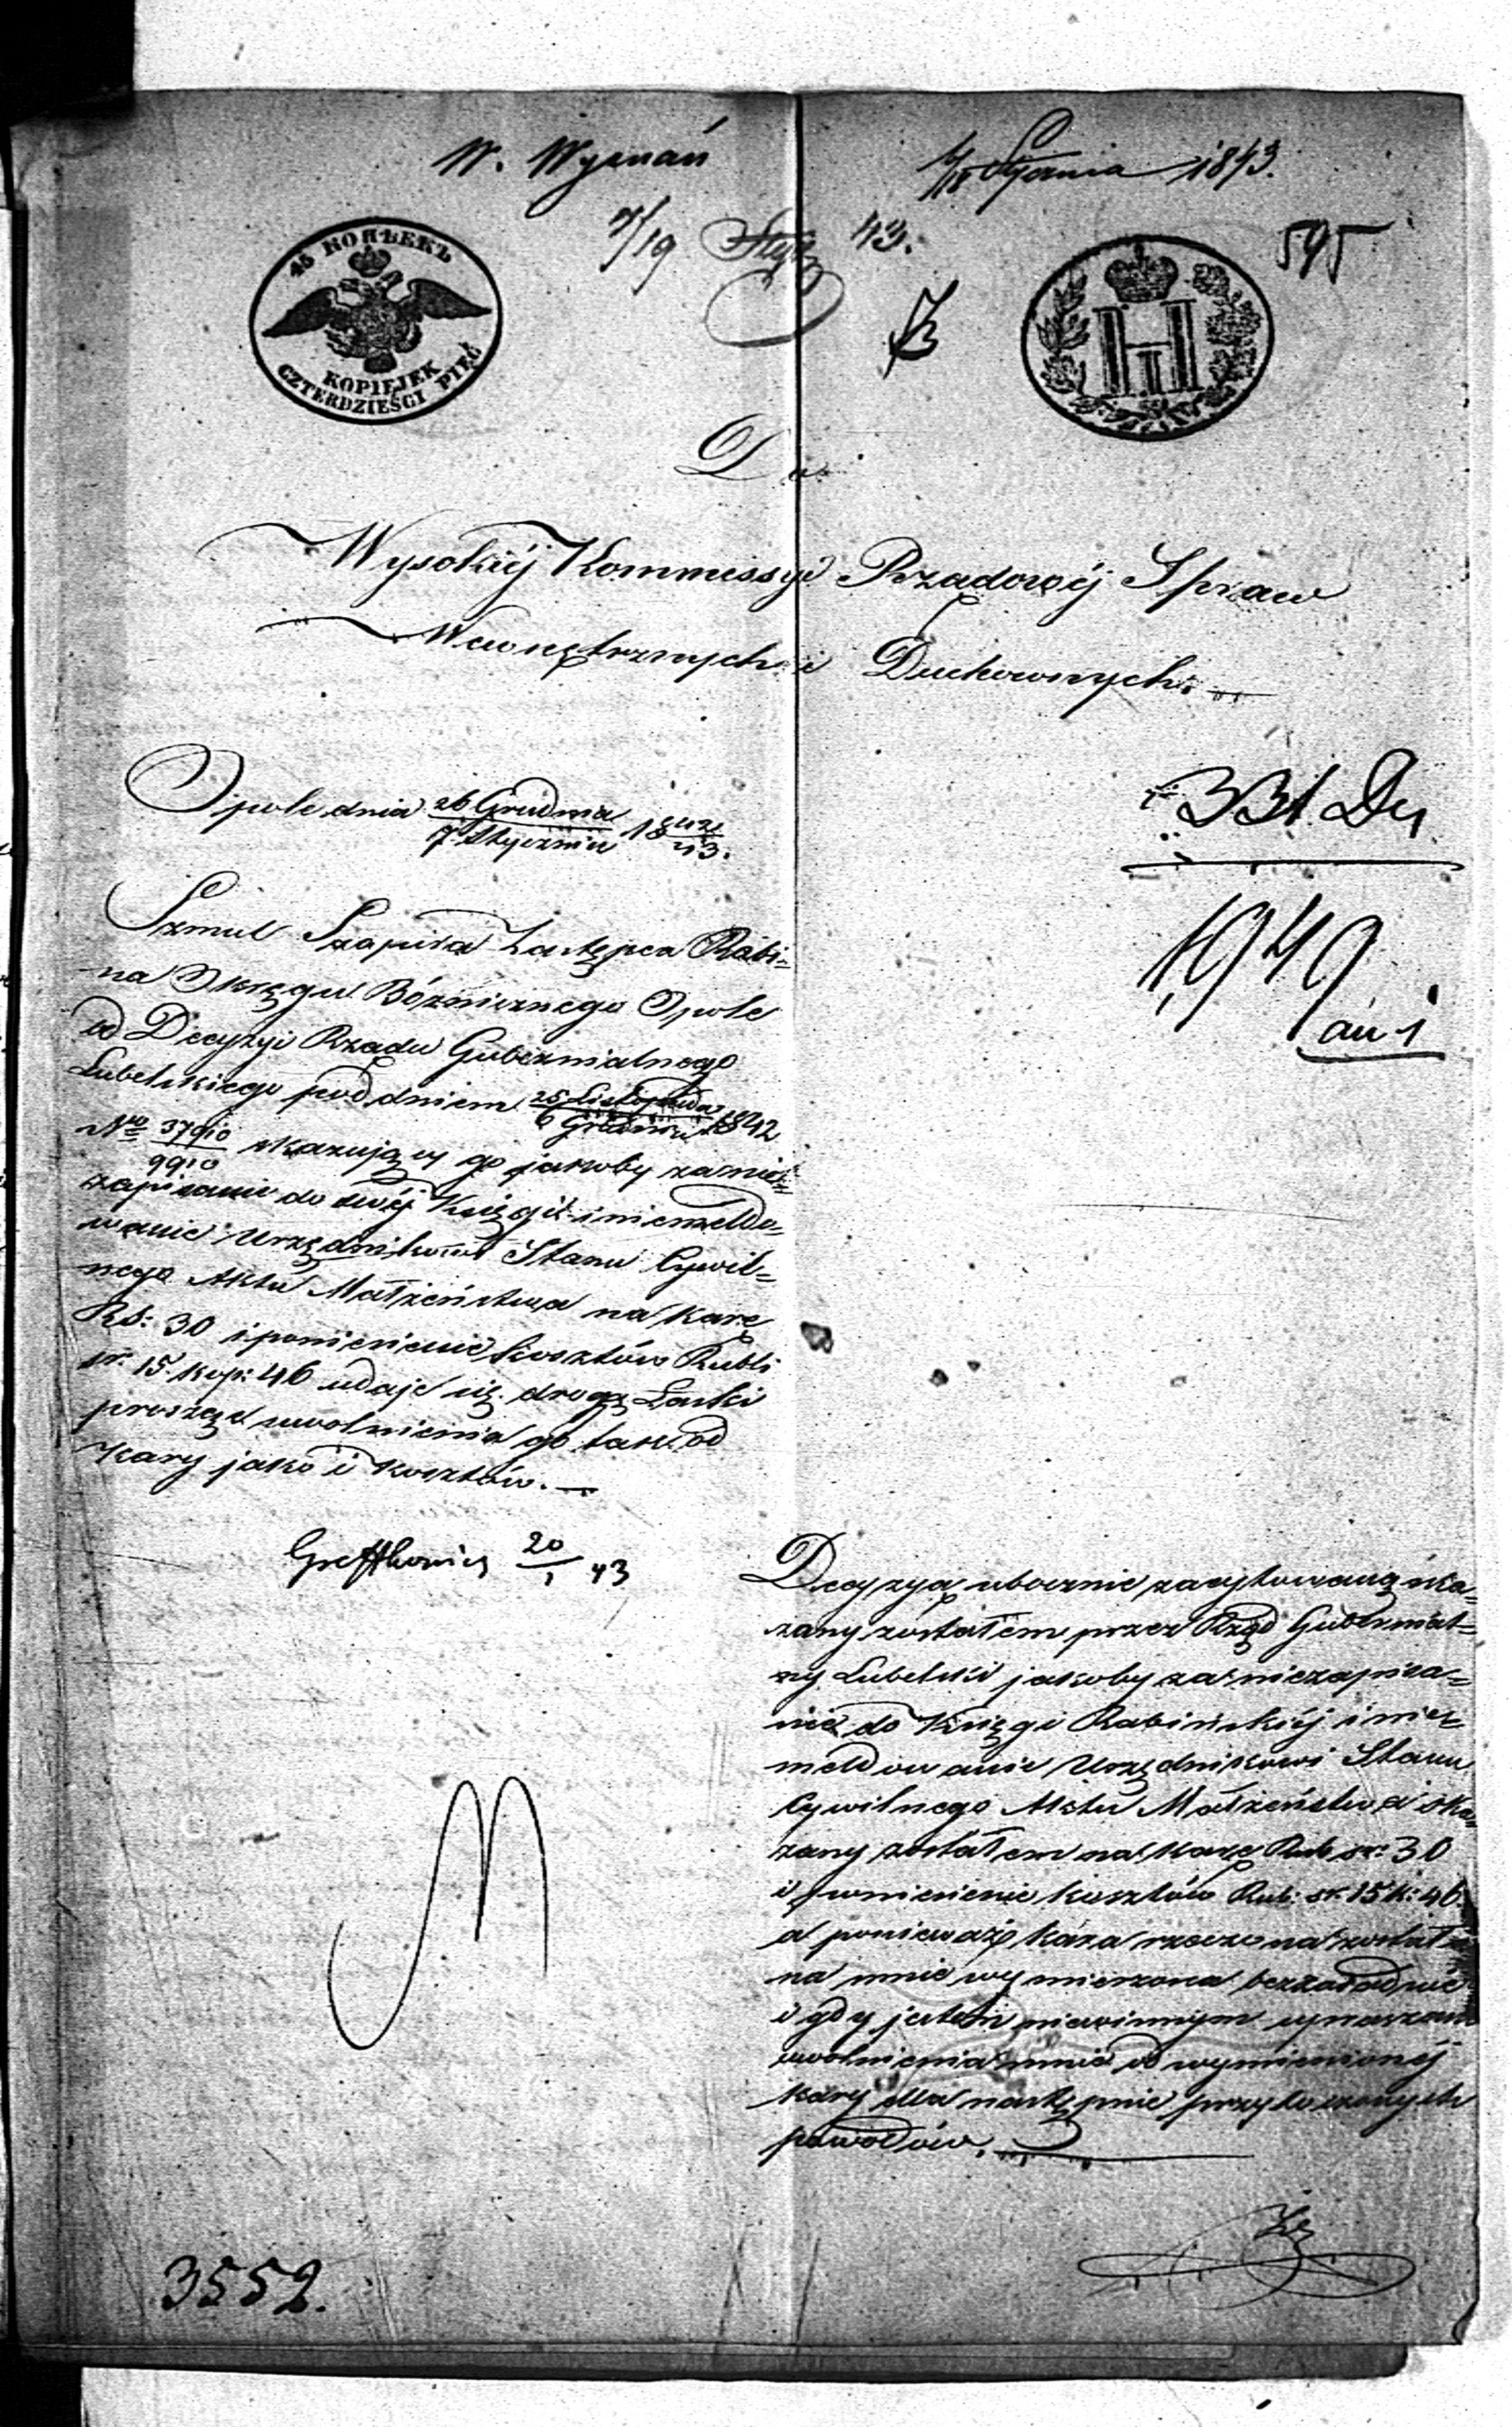 W. Wyznań
6/18 Stycznia 1843.
7/19 Stycz 43.
595
45 КОПѢЕКЪ
KOPIEJEK
CZTERDZIEŚCI PIĘĆ
Н
Do
Wysokiéj Kommissyi Rządowéj Spraw
Wewnętrznych i Duchownych.
Opole dnia 26 Grudnia / 7 Stycznia 18 42/43.
331
1,949
Szmul Szapira Zastępca Rabi=
na Okręgu Bóznicznego Opole
od Decyzyi Rządu Gubernialnego
Lubelskiego pod dniem 25 Listopada / 6 Grudnia 1842
Nro 37910/9910 skazujący go jakoby za nie=
zapisanie do swéj Księgi i niemeldo=
wanie Urzędnikowi Stanu Cywil=
nego Aktu Małżeństwa na karę
Rs: 30 i poniesienie kosztów Rubli
sr. 15. kop: 46 udaje się drogą Łaski
prosząc uwolnienia go tak od
kary jako i kosztów.
20/1 43
Decyzyą ubocznie zacytowaną ska=
zany zostałem przez Rząd Gubernial=
ny Lubelski jakoby za niezapisa=
nie do Księgi Rabińskiéj i nie=
meldowanie Urzędnikowi Stanu
Cywilnego Aktu Małżeństwa ska=
zany zostałem na karę Rub sr: 30
i poniesienie kosztów Rub: sr. 15 k: 46.
a ponieważ kara rzeczona została
na mnie wymierzona bezzasadnie
i gdy jestem niewinnym upraszam
uwolnienia mnie od wymienionéj
kary dla następnie przytoczonych
powodów.
3552.